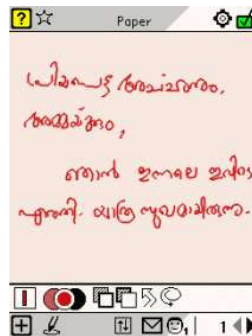 Paper
പ്രിയപ്പെട്ട അച്ഛനും,
അമ്മയ്ക്കും,
ഞാൻ ഇന്നലെ ഇവിടെ
എത്തി. യാത്ര സുഖമായിരുന്നു.
1